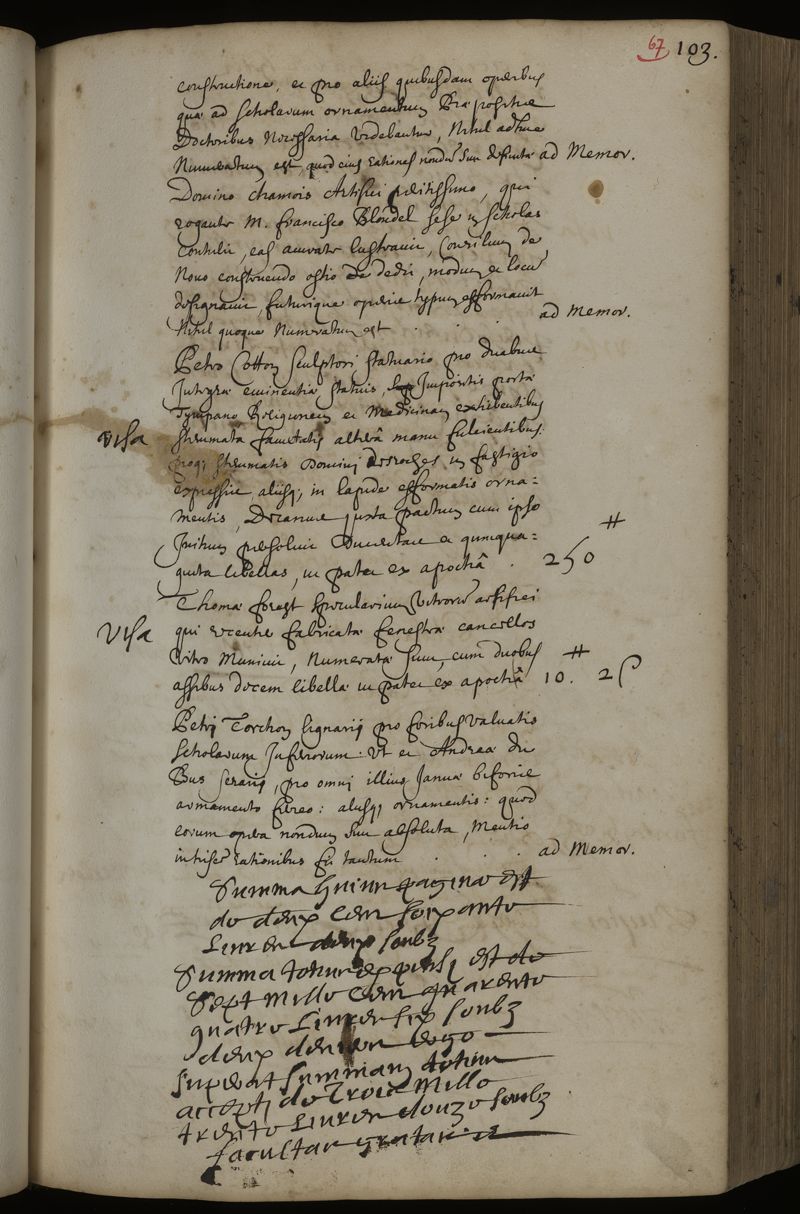 67 103.
constructione, et pro aliis quibusdam operibus
quæ ad scholarum ornamentum Præposteræ
Doctoribus Necessaria Videbantur, Nihil adhuc
Numeratum est, quod eius rationes nondum sint ad Memor.
Domino chamois Artifici peritissimo, qui
rogante M. francisco Blondel sese in scholas
contulit, eas accurate lustravit, Consilium de
Novo construendo ostio dedit, modum et locum
designavit, futurique operis typum efformavit
Nihil quoque Numeratum est . . . ad Memor.
Petro Cotton sculptori statuario pro duabus
Integra eminentia statuis, Impositis portæ
Tympano Religionem et Medicinam exhibentibus
Visa stemmata facultatis altera manu fulcientibus.
proq; stemmatis Domini desroches in fastigio
expressis, aliisq; in lapide efformatis orna=
mentis, Decanus juxta pactum cum ipso
Initum persoluit Ducentas et quinqua=
ginta libellas, ut patet ex apocha . 250 ₶
Thomæ forest speculariorum Vitrorum artifici
Visa qui recenter fabricatæ fenestræ cancellos
Vitro Muniuit, Numeratæ sunt, cum duobus
assibus decem libellæ ut patet ex apocha 10 ₶. 2 ſ
Petri Torchon lignarij pro foribus Valuatis
scholarum Inferiorum. Vt et Andreæ du
Bus serarij, pro omni illius Januæ biforis
armamento ferreo: aliisq; ornamentis: quod
eorum opera nondum sint absoluta, Mentio
in hisce rationibus fit tantum . . . ad Memor.
Summa huius paginæ est
de deux cens soixante
Liures deux soubz
Summa totius expensi est de
Sept mille cens quarente
quatre Liures six soubz
deux deniers ergo
superat summam totius
accepti de Trois mille
trente Liures douze soubz
facultas